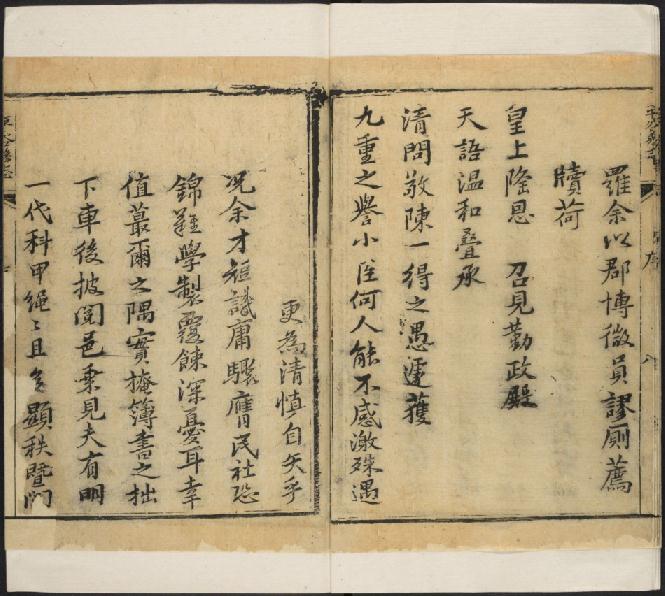 羅余以郡博微員謬廁薦
牘荷
皇上隆恩 召見勤政殿
天語温和叠承
清問敬陳一得之愚遽獲
九重之譽小臣何人能不感激殊遇
更為清慎自矢乎
况余才短識庸驟膺民社恐
錦難學製覆餗深憂耳幸
值蕞爾之隅實掩簿書之拙
下車後披閱邑乗見夫有明
一代科甲繩〻且多顯秩暨門